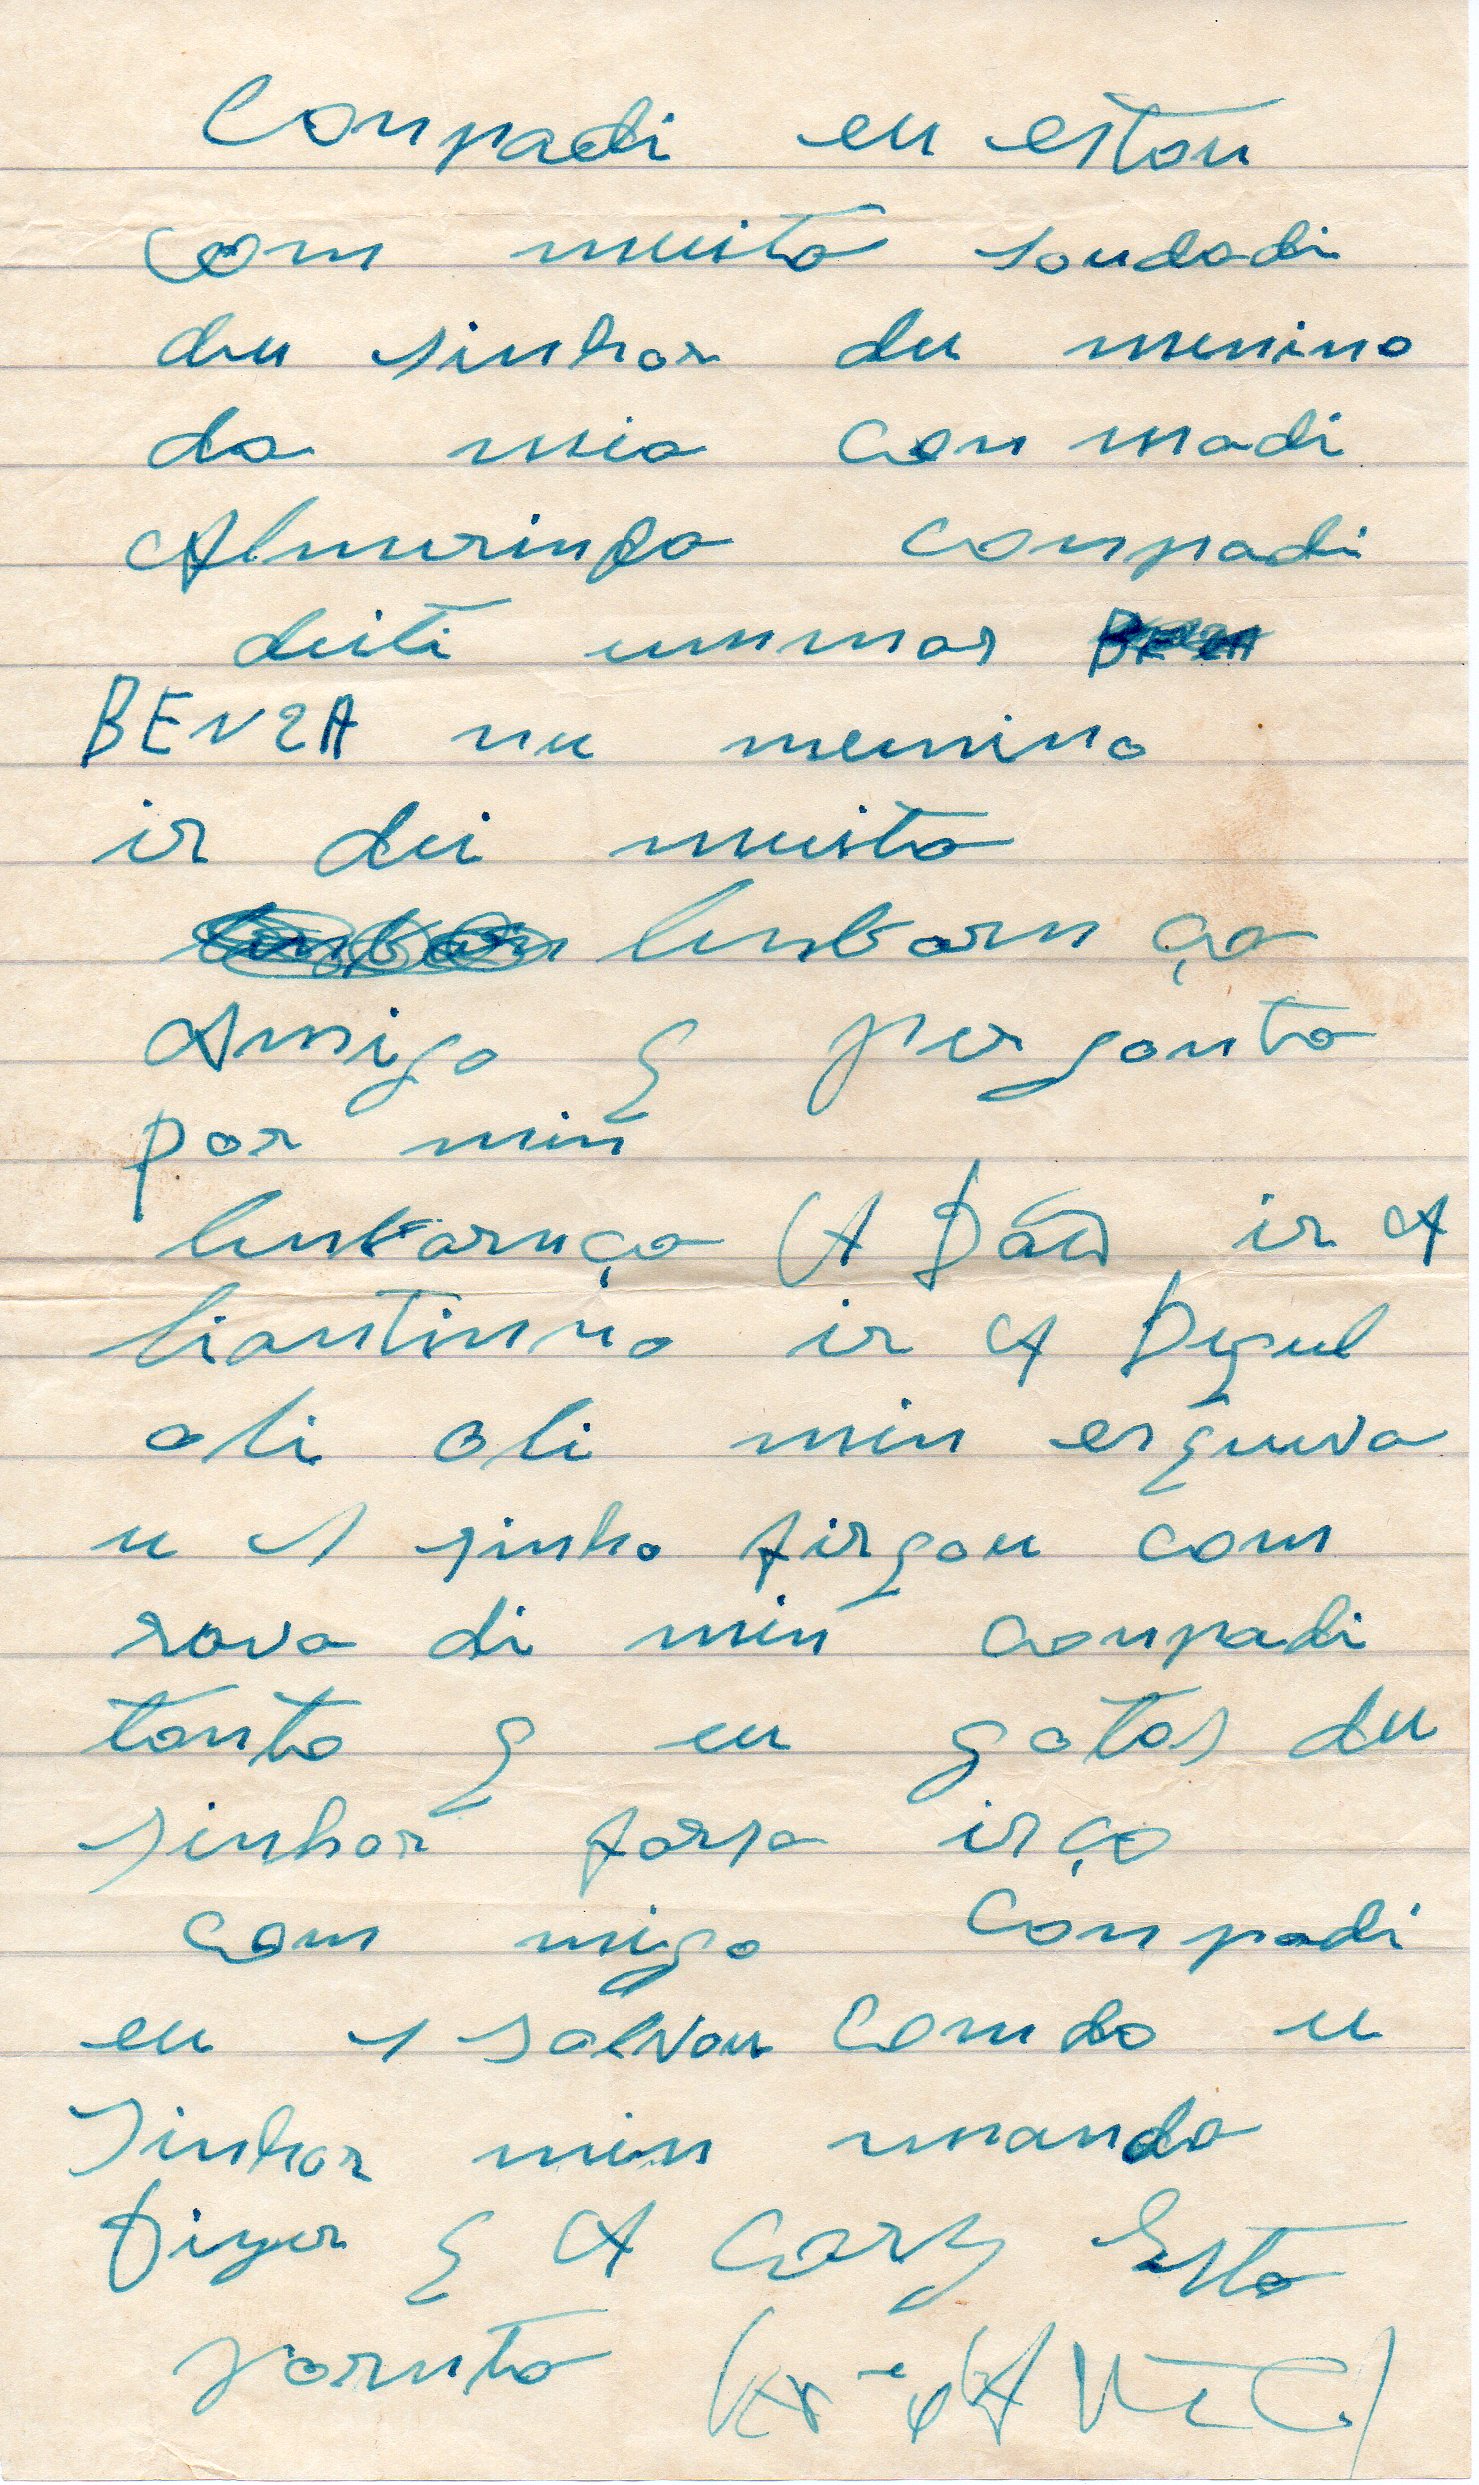 Conpadi eu estou
com muita saudadi
du sinhor du menino
da mia con madi
Almerinda conpadi
deiti ummas
BENZA nu menino
ir dei muita
lenbarn ça
Amigo q per gonta
por min
lenbarnça A ir A
liantinna ir A
ali ali min esquva
u s sinho firgou com
rava di min conpadi
tanto q eu gotos du
sinhor farsa irço
com migo Conpadi
eu s salvou Comdo u
Sinhor min manda
Dizer q A Carq Esta
pornta